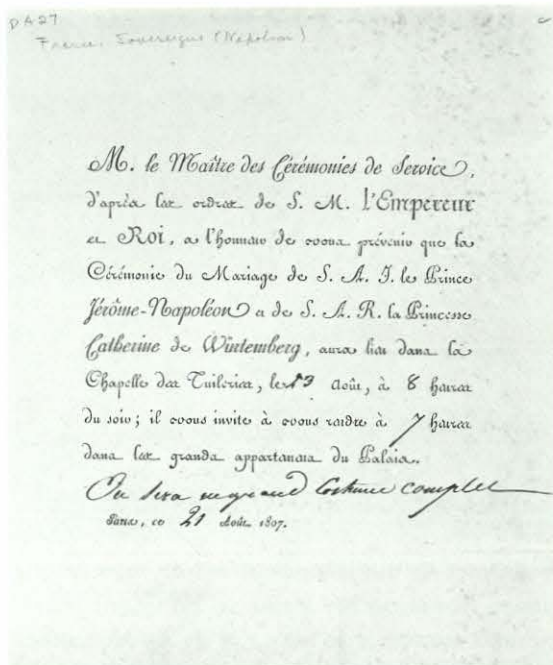 France, Sovereigns (Napoleon)
M. le Maître des Cérémonies de Service,
d'après les ordres de S. M. l'Empereur
et Roi, a l'honneur de vous prévenir que la
Cérémonie du Mariage de S. A. I. le Prince
Jérôme-Napoléon et de S. A. R. la Princesse
Catherine de Wurtemberg, aura lieu dans la
Chapelle des Tuileries, le Août, à 8 heures
du soir; il vous invite à vous rendre à 7 heures
dans les grands appartemens du Palais.
On sera en grand Costume complet
Paris, ce 21 Août 1807.